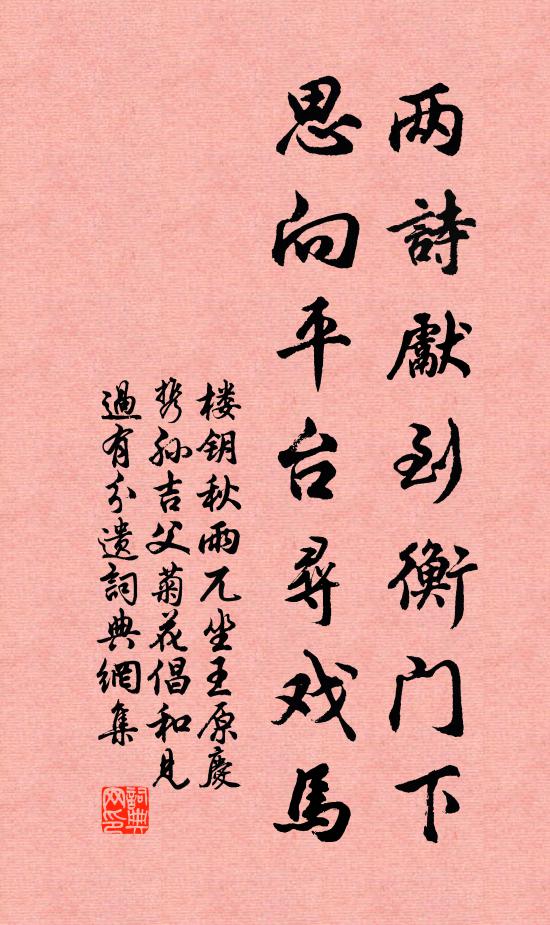 两詩獻到衡门下
思向平台尋戏馬
楼钥秋雨兀坐王原慶
携孙吉父菊花倡和见
過有分遗詞典網集
詞典网印